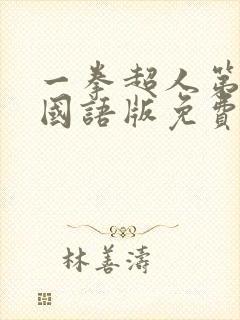 一拳超人第
國語版免費
林善濤